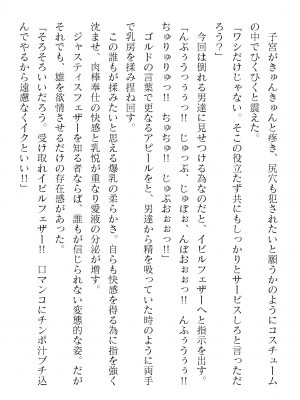 子宮がきゅんきゅんと疼き、尻穴も犯されたいと願うかのようにコスチューム
の中でひくひくと震えた。
「ワシだけじゃない。そこの役立たず共にもしっかりとサービスしろと言っただ
ろう？」
今回は倒れる男達に見せつける為なのだと、イビルフェザーへと指示を出す。
「んぶぅうっうぅっ!! じゅっぷ、じゅぽぉ、んぱおぉぉっ!! んふぅうぅぅっ!!
ちゅりゅりゅっ!! ちゅぢゅっ!! じゅぷおぉぉっ!!」
ゴルドの言葉で更なるアピールをと、男達から精を吸っていた時のように両手
で乳房を揉み捏ね回す。
この誰もが揉みたいと思える爆乳の柔らかさ。自らも快感を得る為に指を強く
沈ませ、肉棒奉仕の快感と乳悦が重なり愛液の分泌が増す。
ジャスティスフェザーを知る者ならば、誰もが信じられない変態的な姿。だが
それでも、雄を欲情させるだけの存在感があった。
「そろそろいいだろう。受け取れイビルフェザー!! 口マンコにチンポ汁ブチ込
んでやるから遠慮なくイクといい!!」